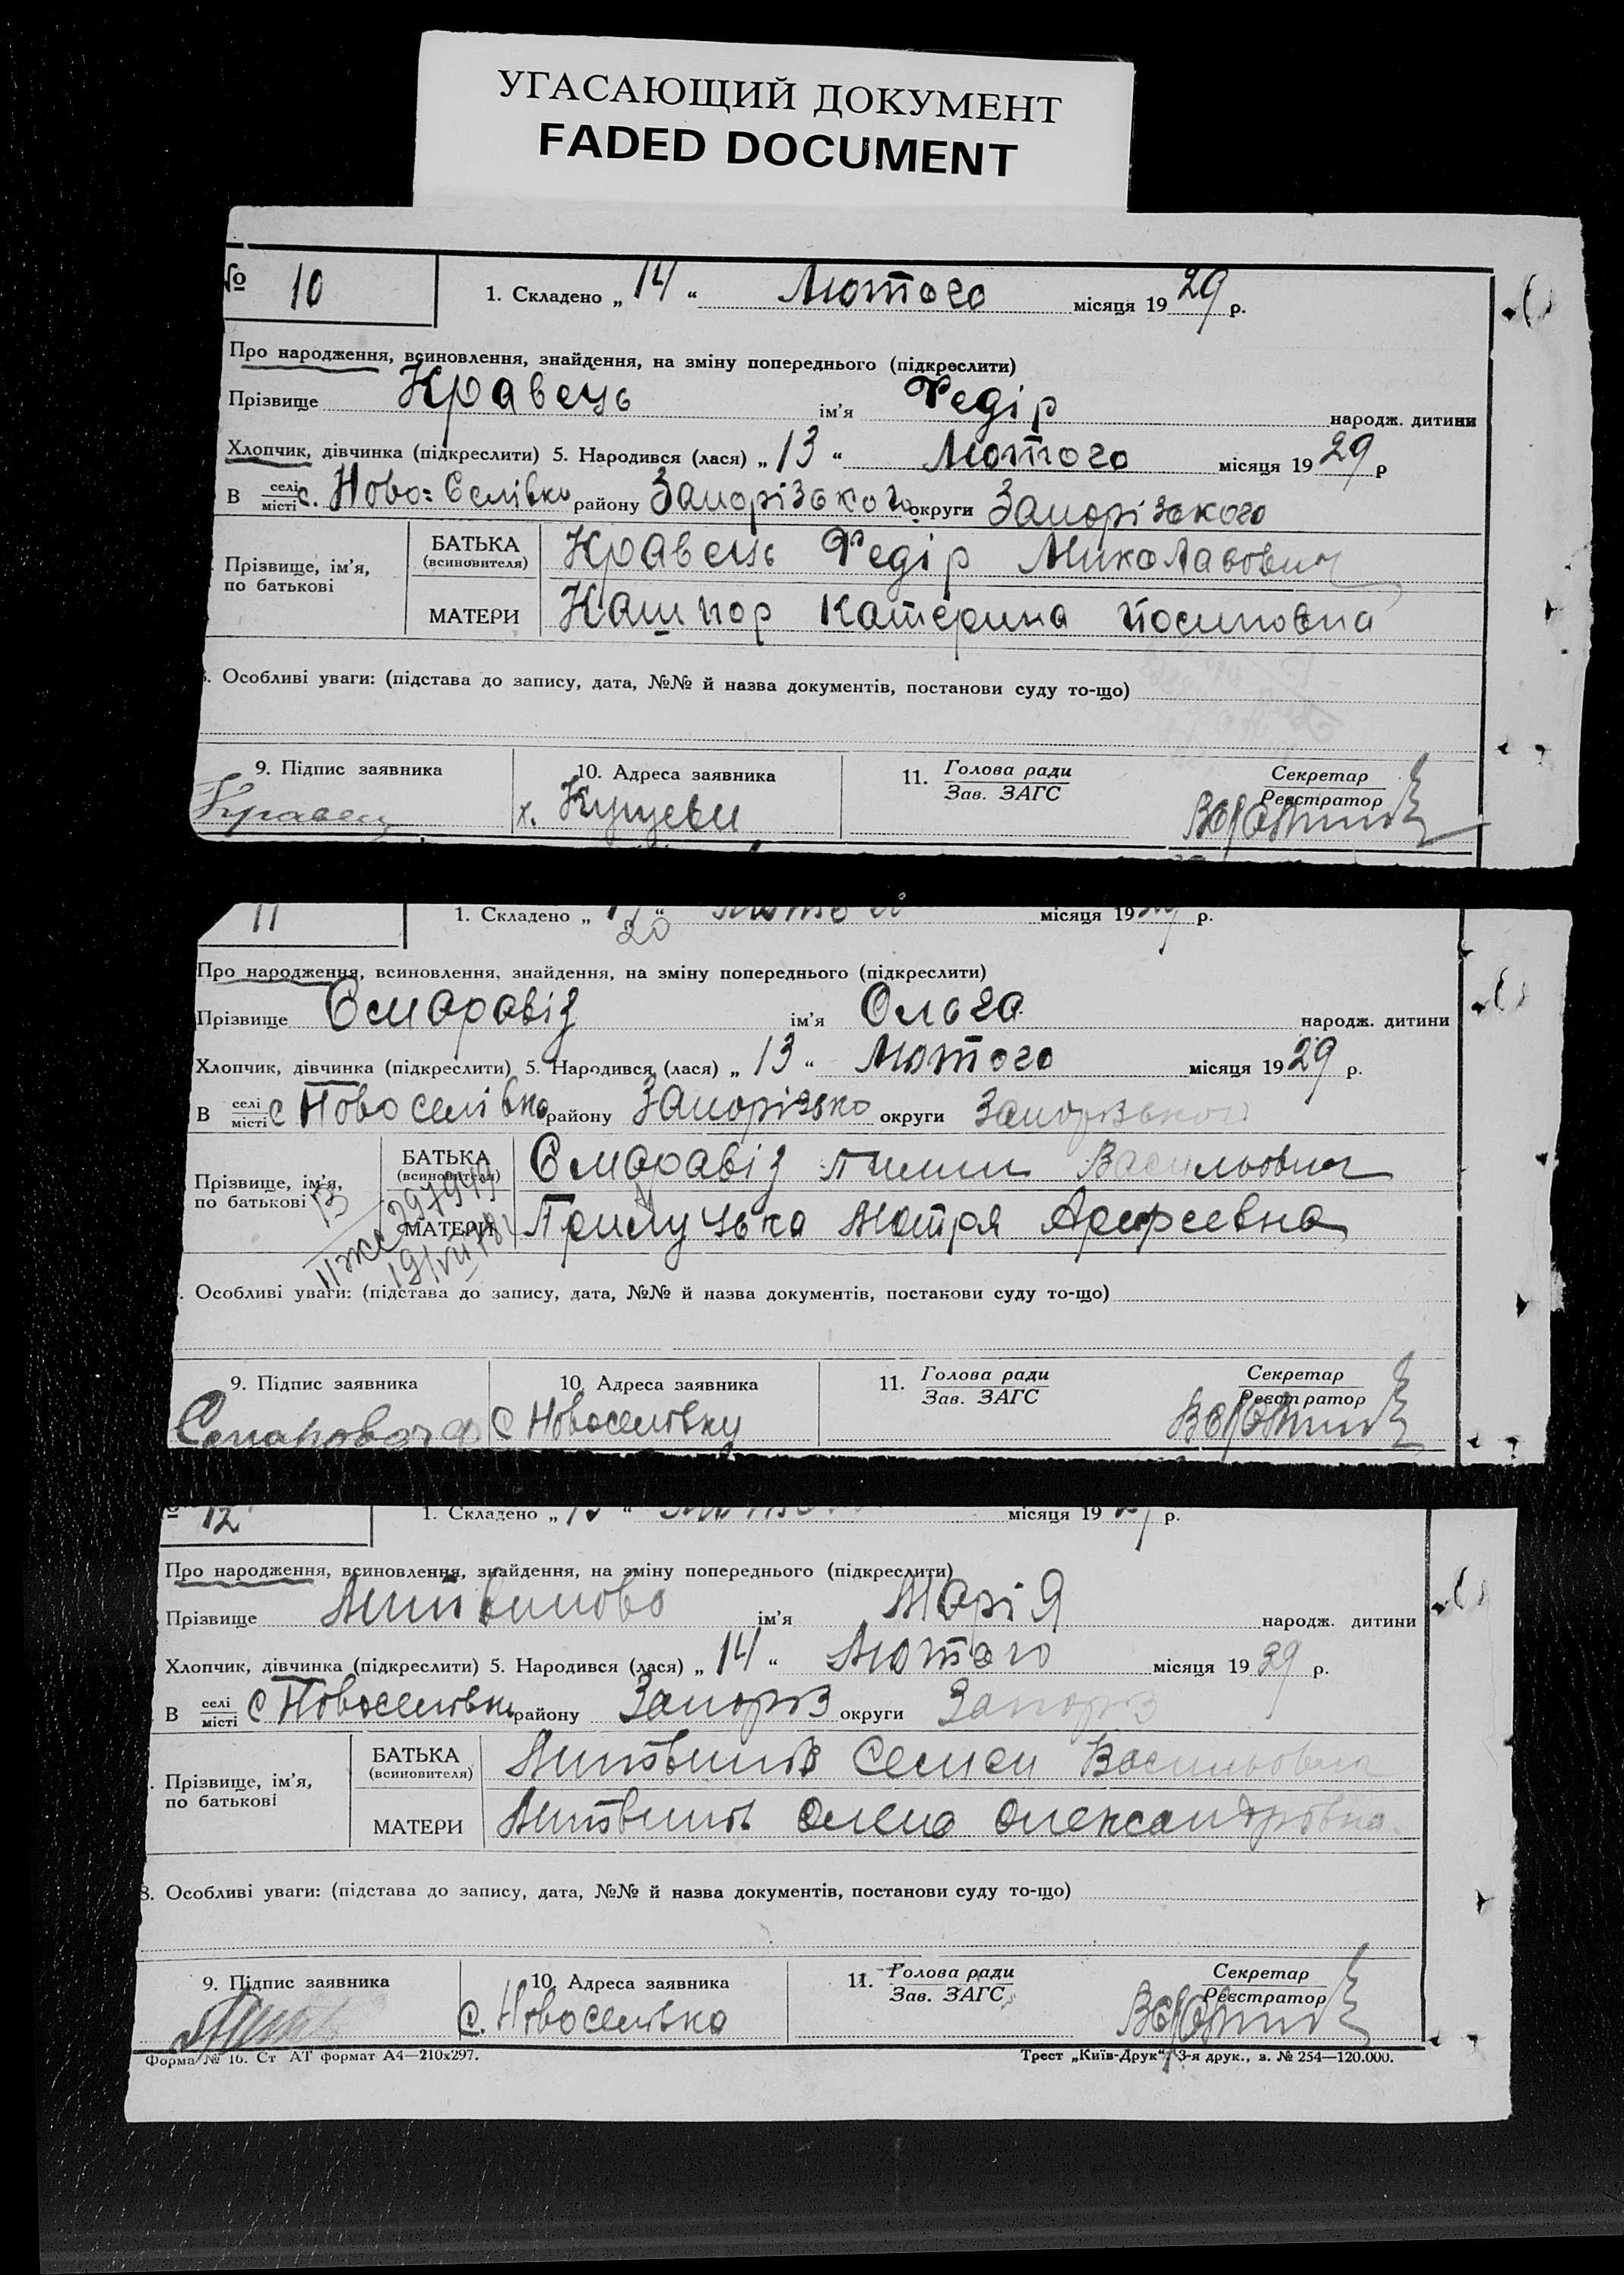 УГАСАЮЩИЙ ДОКУМЕНТ
FADED DOCUMENT
№ 10 1. Складено „ 14 “ Лютого місяця 19 29 р.
Про народження, всиновлення, знайдення, на зміну попереднього (підкреслити)
Прізвище Кравець ім’я Федір народж. дитини
Хлопчик, дівчинка (підкреслити) 5. Народився (лася) „ 13 “ Лютого місяця 19 29 р
В селі місті с. Ново=Селівка району Запорізького округи Запорізького
Прізвище, ім’я, по батькові
БАТЬКА (всиновителя) Кравець Федір Миколайович
МАТЕРИ Кашпор Катерина Йосиповна
. Особливі уваги: (підстава до запису, дата, №№ й назва документів, постанови суду то-що)
9. Підпис заявника 10. Адреса заявника 11. Голова ради Секретар
Зав. ЗАГС Реєстратор
Кравец х.
11 1. Складено „ “ 20 місяця 19 р.
Про народження, всиновлення, знайдення, на зміну попереднього (підкреслити)
Прізвище ім’я Ольга народж. дитини
Хлопчик, дівчинка (підкреслити) 5. Народився (лася) „ 13 “ Лютого місяця 19 29 р.
В селі місті с Новоселівка району Запорізько округи Запорізького
Прізвище, ім’я, по батькові
БАТЬКА (всиновителя) Васильович
МАТЕРИ Прилуцька Мотря
. Особливі уваги: (підстава до запису, дата, №№ й назва документів, постанови суду то-що)
9. Підпис заявника 10. Адреса заявника 11. Голова ради Секретар
Зав. ЗАГС Реєстратор
с Новоселівку
12 1. Складено „ “ місяця 19 р.
Про народження, всиновлення, знайдення, на зміну попереднього (підкреслити)
Прізвище Литвинова ім’я Марія народж. дитини
Хлопчик, дівчинка (підкреслити) 5. Народився (лася) „ 14 “ Лютого місяця 19 29 р.
В селі місті с Новоселівка району Запоріз округи Запоріз
. Прізвище, ім’я, по батькові
БАТЬКА (всиновителя) Литвинов Семен Васильович
МАТЕРИ Литвинов Олена Олександровна
8. Особливі уваги: (підстава до запису, дата, №№ й назва документів, постанови суду то-що)
9. Підпис заявника 10. Адреса заявника 11. Голова ради Секретар
Зав. ЗАГС Реєстратор
с. Новоселівка
Форма № 16. Ст АТ формат А4—210х297. Трест „Київ-Друк“, 3-я друк., з. № 254—120.000.